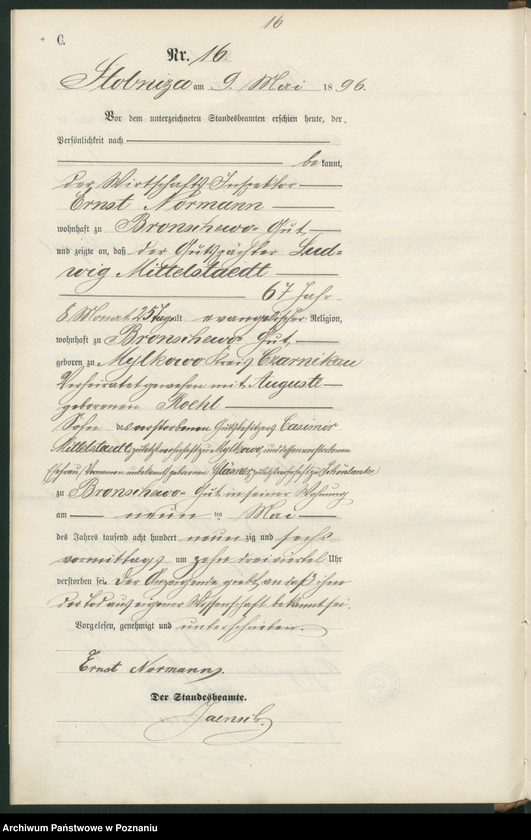 16
C.
Nr. 16
Stobnica am 9. Mai 1896.
Vor dem unterzeichneten Standesbeamten erschien heute, der
Persönlichkeit nach
bekannt,
der Wirtschafts Inspektor
Ernst Normann
wohnhaft zu Bronschewo-Gut
und zeigte an, daß der Gutspächter Lud-
wig Mittelstaedt
67 Jahr
8 Monat 25 Tage alt evangelischer Religion,
wohnhaft zu Bronschewo Gut
geboren zu Mylkowo Kreis Czarnikau
Verheiratet gewesen mit Auguste
geborenen Roehl
Sohn des verstorbenen Gutsbesitzers Casimir
Mittelstaedt, zuletzt wohnhaft zu Mylkowo, und dessen verstorbenen
Ehefrau, Vornamen unbekannt geborenen Gläser, zuletzt wohnhaft zu Schönlanke
zu Bronschewo-Gut in seiner Wohnung
am neun ten Mai
des Jahres tausend acht hundert neunzig und sechs
vormittags um zehn dreiviertel Uhr
verstorben sei. Der Anzeigende giebt an daß ihm
der Tod aus eigener Wissenschaft bekannt sei.
Vorgelesen, genehmigt und unterschrieben.
Ernst Normann.
Der Standesbeamte.
Archiwum Państwowe w Poznaniu